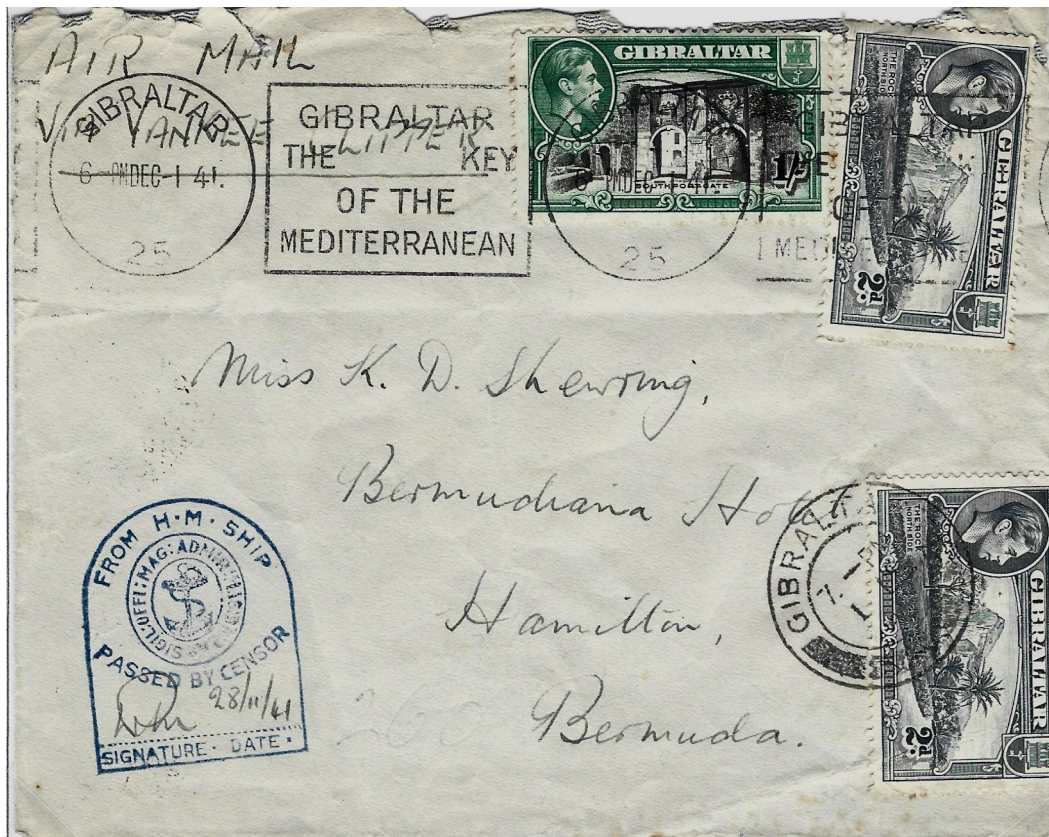 AIR MAIL
VIA YANKEE CLIPPER
GIBRALTAR
6-PMDEC-1 41.
25
GIBRALTAR
THE KEY
OF THE
MEDITERRANEAN
GIBRALTAR
SOUTHPORT GATE
1/-
6-PMDEC-1 41
25
GIBRALTAR
THE ROCK
NORTH SIDE
GIBRALTAR
2D
Miss K. D. Shewring,
Bermudiana Hotel
Hamilton,
Bermuda.
GIBRALTAR
THE ROCK
NORTH SIDE
GIBRALTAR
2D
FROM H·M·SHIP
SIGIL:OFFI:MAG:ADMIR
PASSED BY CENSOR
28/11/41
SIGNATURE· DATE·